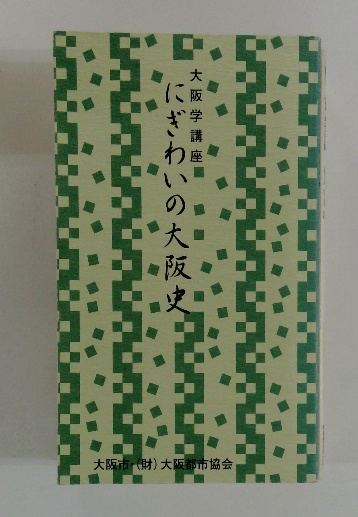 大阪学講座
にぎわいの大阪史
大阪市・(財)大阪都市協会